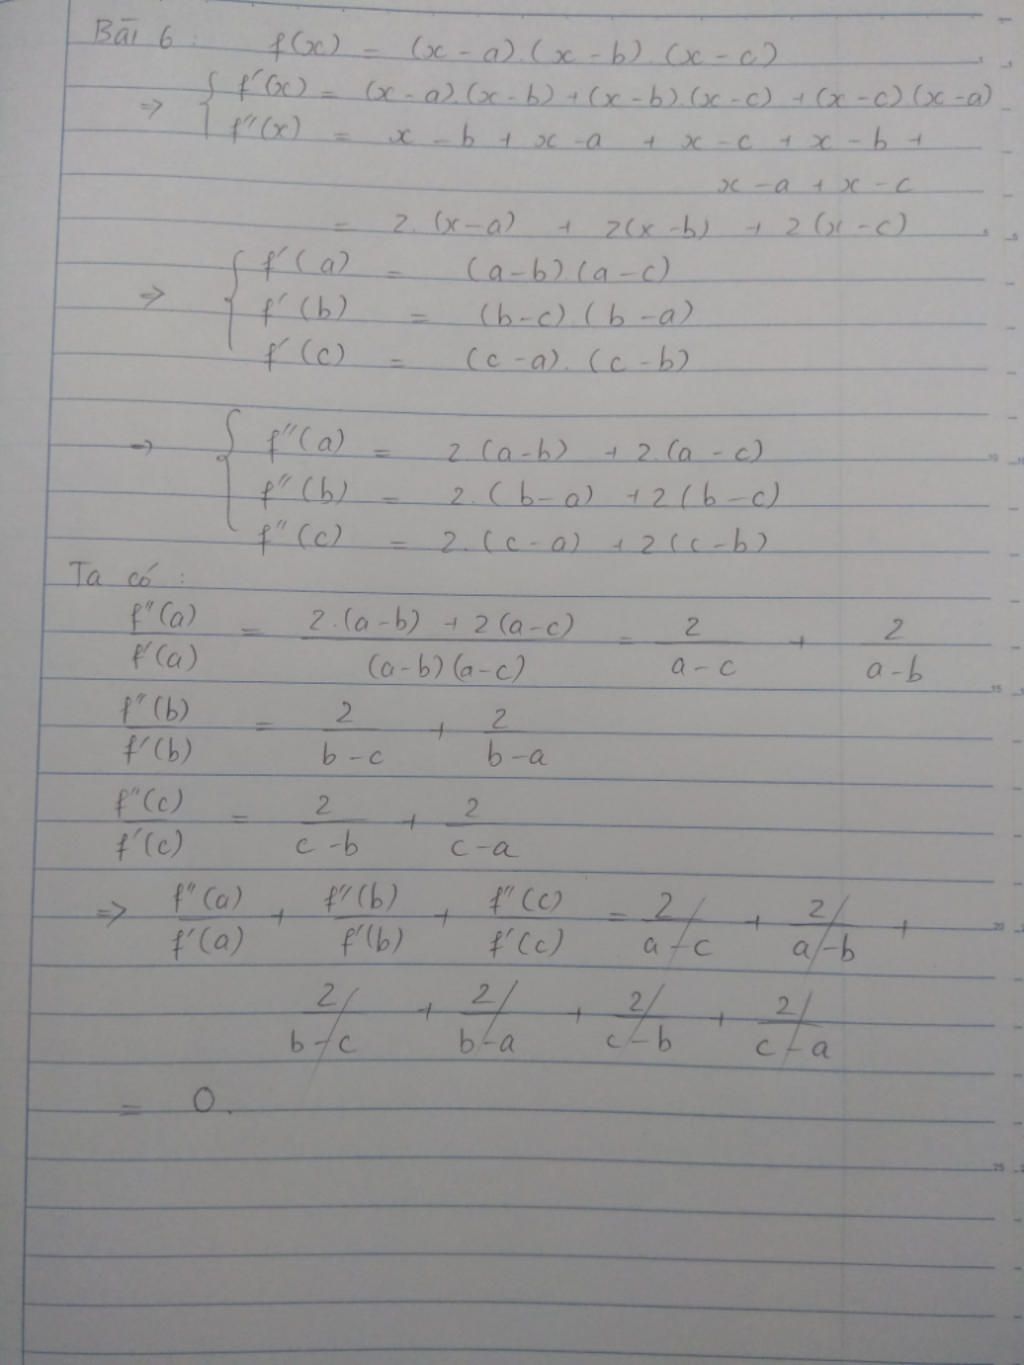 Bài 6 : f(x) = (x - a).(x - b).(x - c)
⇒ { f'(x) = (x - a).(x - b) + (x - b).(x - c) + (x - c)(x - a)
f''(x) = x - b + x - a + x - c + x - b +
x - a + x - c
= 2.(x - a) + 2(x - b) + 2(x - c)
⇒ { f'(a) = (a - b)(a - c)
f'(b) = (b - c).(b - a)
f'(c) = (c - a).(c - b)
⇒ { f''(a) = 2.(a - b) + 2.(a - c)
f''(b) = 2.(b - a) + 2(b - c)
f''(c) = 2.(c - a) + 2(c - b)
Ta có :
f''(a)/f'(a) = (2.(a - b) + 2(a - c))/((a - b)(a - c)) = 2/(a - c) + 2/(a - b)
f''(b)/f'(b) = 2/(b - c) + 2/(b - a)
f''(c)/f'(c) = 2/(c - b) + 2/(c - a)
⇒ f''(a)/f'(a) + f''(b)/f'(b) + f''(c)/f'(c) = 2/(a - c) + 2/(a - b) +
2/(b - c) + 2/(b - a) + 2/(c - b) + 2/(c - a)
= 0.